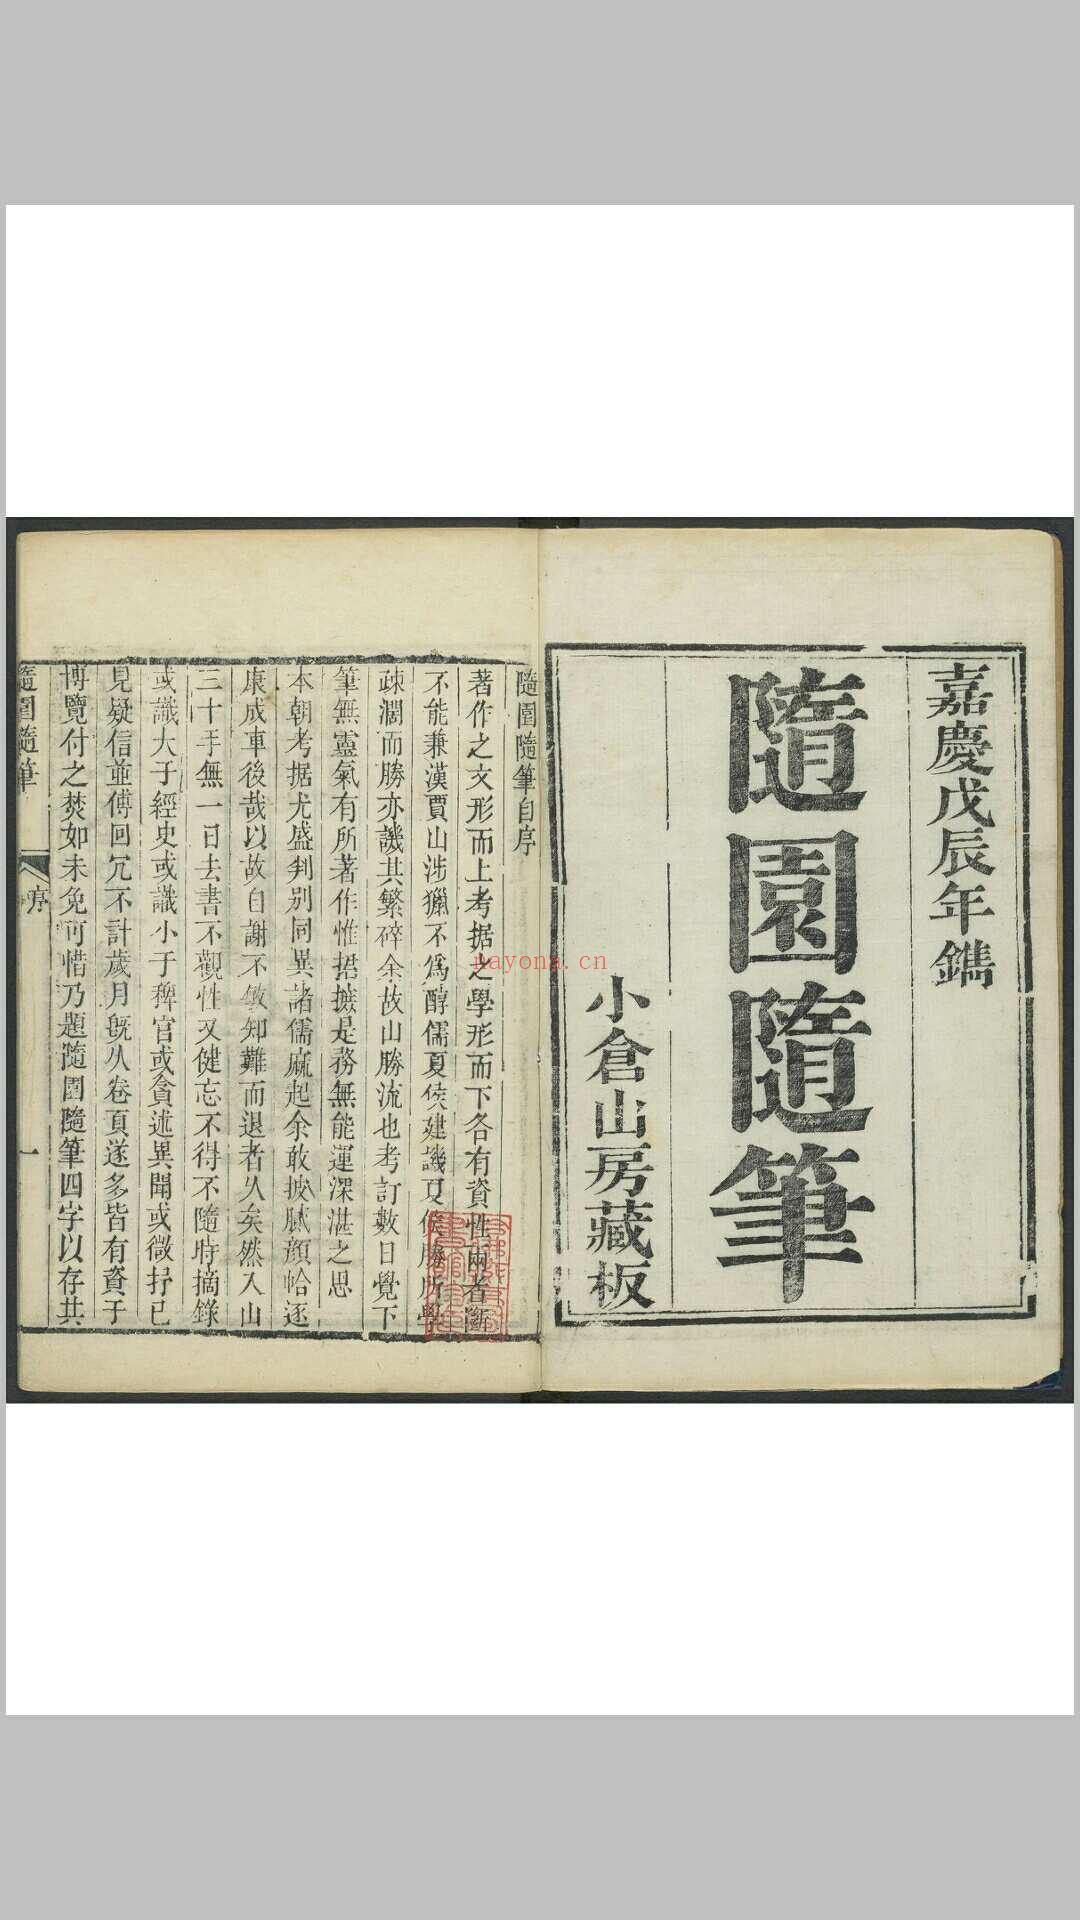 嘉慶戊辰年鐫
隨園隨筆
小倉山房藏板
隨園隨筆自序
著作之文形而上考據之學形而下各有資性兩者斷
不能兼漢賈山涉獵不為醇儒夏侯建譏夏侯勝所學
疎濶而勝亦譏其繁碎余故山勝流也考訂數日覺下
筆無靈氣有所著作惟捃摭是務無能運深湛之思
本朝考据尤盛判别同異諸儒麻起余敢披膩顏帢逐
康成車後哉以故自謝不敏知難而退者久矣然入山
三十年無一日去書不觀性又健忘不得不隨時摘錄
或識大于經史或識小于稗官或貪述異聞或微抒己
見疑信並傅回冗不計歲月旣久卷頁遂多皆有資于
博覽付之焚如未免可惜乃題隨園隨筆四字以存其
隨園隨筆
序
一
nayona.cn